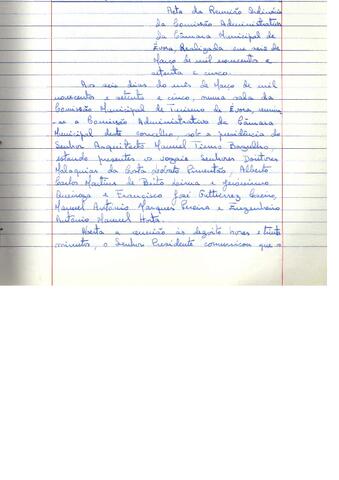 Acta da Reunião Ordinária
da Comissão Administrativa
da Câmara Municipal de
Évora, Realizada em seis de
Março de mil novecentos e
setenta e cinco.
Aos seis dias do mês de Março de mil
novecentos e setenta e cinco, numa sala da
Comissão Municipal de Turismo de Évora, reuniu-
-se a Comissão Administrativa da Câmara
Municipal deste concelho, sob a presidência do
Senhor Arquitecto Manuel Tierno Bagulho,
estando presentes os vogais Senhores Doutores
Malaquias da Costa Pimentão, Alberto
Carlos Martins de Brito Lima e Jerónimo
e Francisco José Gutierrez
Manuel António Marques Pereira e Engenheiro
António Manuel Horta.
Aberta a reunião às dezoito horas e trinta
minutos, o Senhor Presidente comunicou que o